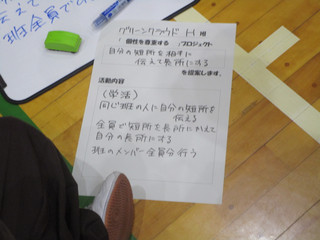 えて
班全員で
グリーンクラウド H 班
「個性を尊重する 」プロジェクト
自分の短所を相手に
伝えて長所にする
を提案します。
活動内容
(学活)
同じ班の人に自分の短所を
伝える
全員で短所を長所にかえて
自分の長所にする
班のメンバー全員分行う